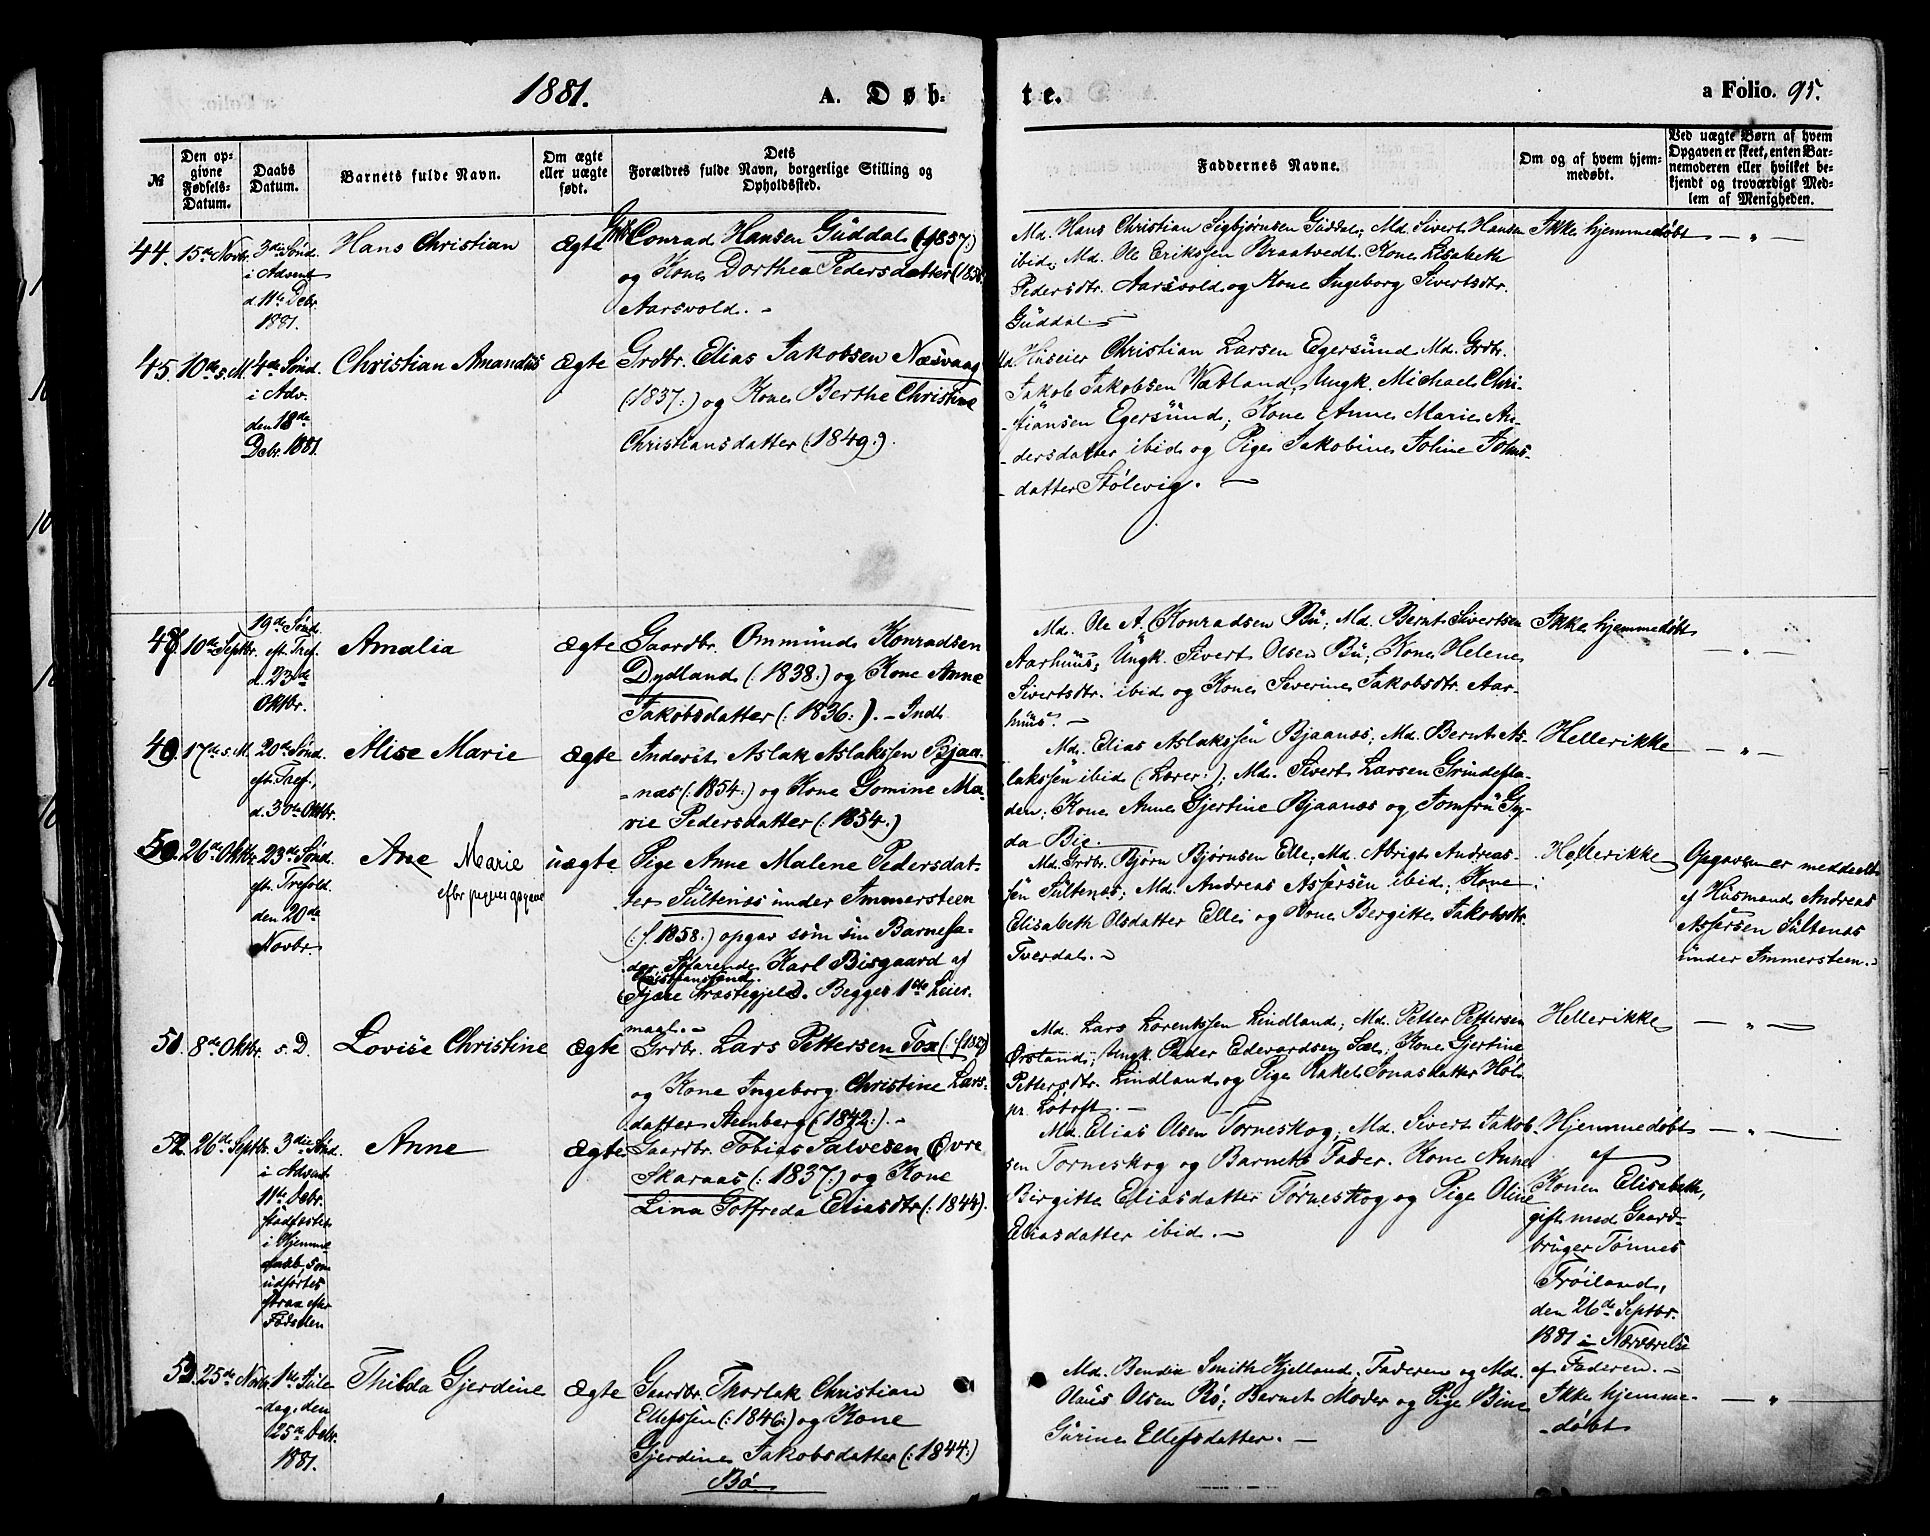 1881.
A. Døb-
te.
a Folio. 95.
№
Den op-
givne
Fødsels-
Datum.
Daabs
Datum.
Barnets fulde Navn.
Om ægte
eller uægte
født.
Dets
Forældres fulde Navn, borgerlige Stilling og
Opholdssted.
Faddernes Navne.
Om og af hvem hjem-
medøbt.
Ved uægte Børn af hvem
Opgaven er skeet, enten Bar-
nemoderen eller hvilket be-
kjendt og troværdigt Med-
lem af Menigheden.
44.
15de Novbr.
3die Sønd.
i Advent
d. 11te Debr.
1881.
Hans Christian
Ægte
Conrad Hansen Güddal (f. 1857:)
og Kone Dorthea Pedersdatter
Aarsvold. -
Md. Hans Christian Sigbjørnsen Güddal; Md. Sivert Hansen
ibid; Md. Ole Eriksen Braatvedt. Kone Lisabeth
Pedersdtr. Aarsvold og Kone Ingeborg Sivertsdtr.
Güddal. -
Ikke hjemmedøbt
- " -
45.
10de s. M.
4de Sønd.
i Adv.
den 18de
Debr. 1881.
Christian Amandüs
Ægte
Grdbr. Elias Jakobsen Næsvaag
(:1837:) og Kone Berthe Christine
Christiansdatter (:1849:).
Huseier Christian Larsen Egersünd Md. Grdbr.
Jakob Jakobsen Vatland, Ungk. Michael Chri-
stiansen Egersünd; Kone Anne Marie An-
dersdatter ibid og Pige Jakobine Joline Johns-
datter Stølevig. -
10de Septbr.
19de Sønd.
eft. Tref.
d. 23de
Oktbr.
Amalia
Ægte
Gaardbr. Ommünd Konradsen
Dydland (:1838:) og Kone Anne
Jakobsdatter (:1836:). -
Md. Ole A. Konradsen Bü; Md. Bernt Sivertsen
Aarhüus; Ungk. Sivert Olsen Bü; Kone Helene
Sivertsdtr. ibid og Kone Severine Jakobsdtr. Aar-
hüüs. -
Ikke hjemmedøbt
- " -
17de s. M.
20de Sønd.
eft. Tref.,
d. 30te Oktbr.
Alise Marie
Ægte
Inderst Aslak Aslaksen Bjaa-
næs (:1854:) og Kone Gomine Ma-
rie Pedersdatter (:1854.)
Md. Elias Aslaksen Bjaanæs; Md. Bernt As-
laksen ibid (Lærer:); Md. Sivert Larsen Grindefla-
den; Kone Anne Gjertine Bjaanæs og Jomfrü Gy-
da Bie.
Hellerikke
- " -
50.
26de Oktbr.
23de Sønd.
eft. Trefold.
den 20de
Novbr.
Ane Marie
uægte
Pige Anne Malene Pedersdat-
ter Sültenæs ünder Immersteen
(:f. 1858:) opgav som sin Barnefa-
der Karl Bisgaard af
Christianssand
Præstegjeld. Begges 1ste Leier-
maal. -
Md. Grdbr. Bjørn Bjørnsen Elle; Md. Abrigt Andreas-
sen Sültenæs; Md. Andreas Assersen ibid; Kone
Elisabeth Olsdatter Elle og Kone Bergitte Jakobsdtr.
Tverdal. -
Hellerikke
Opgaven er meddeelt
af Hüsmand Andreas
Assersen Sültenæs
ünder Immersteen. -
51.
8de Oktbr.
s. D.
Lovise Christine
Ægte
Grdbr. Lars Pettersen Foss
og Kone Ingeborg Christine Lars-
datter (:1842:). -
Md. Lars Lorentsen Lindland; Md. Petter Pettersen
Ørsland; Ungk. Peder Edvardsen Sæl; Kone Gjertine
Pettersdtr. Lindland og Pige Rakel Jonasdatter
Hellerikke
- " -
52.
26de Septbr.
3die Sønd.
i Advent
11te Debr.
stadfæstet
i Hjemme-
daab, som
udførtes
strax efter
Fødselen
Anne
Ægte
Gaardbr. Tobias Salvesen Øvre
Skaraas (:1837:) og Kone
Lina Gotfreda Eliasdtr (:1844).
Md. Elias Olsen Torneskog; Md. Sivert Jakob-
sen Torneskog og Barnets Fader. Kone Anne
Birgitta Eliasdatter Torneskog og Pige Oline
Eliasdatter ibid. -
Hjemmedøbt
af
Konen Elisabeth,
gift med Gaard-
bruger Tønnes
Frøiland,
den 26de Septbr.
1881 i Nærværelse
af Faderen. -
- " -
53.
25de Novbr.
1ste Jüle-
dag, den
25de Debr.
1881.
Thilda Gjerdine
Ægte
Gaardbr. Thorlak Christian
Ellefsen (:1846:) og Kone
Gjerdine Jakobsdatter (:1844:)
Bø
Md. Bendix Smith Kjelland; Faderen og Md.
Olaüs Olsen Bø; Barnets Moder og Pige Bine
Gürine Ellefsdatter. -
Ikke hjemme-
døbt
- " -